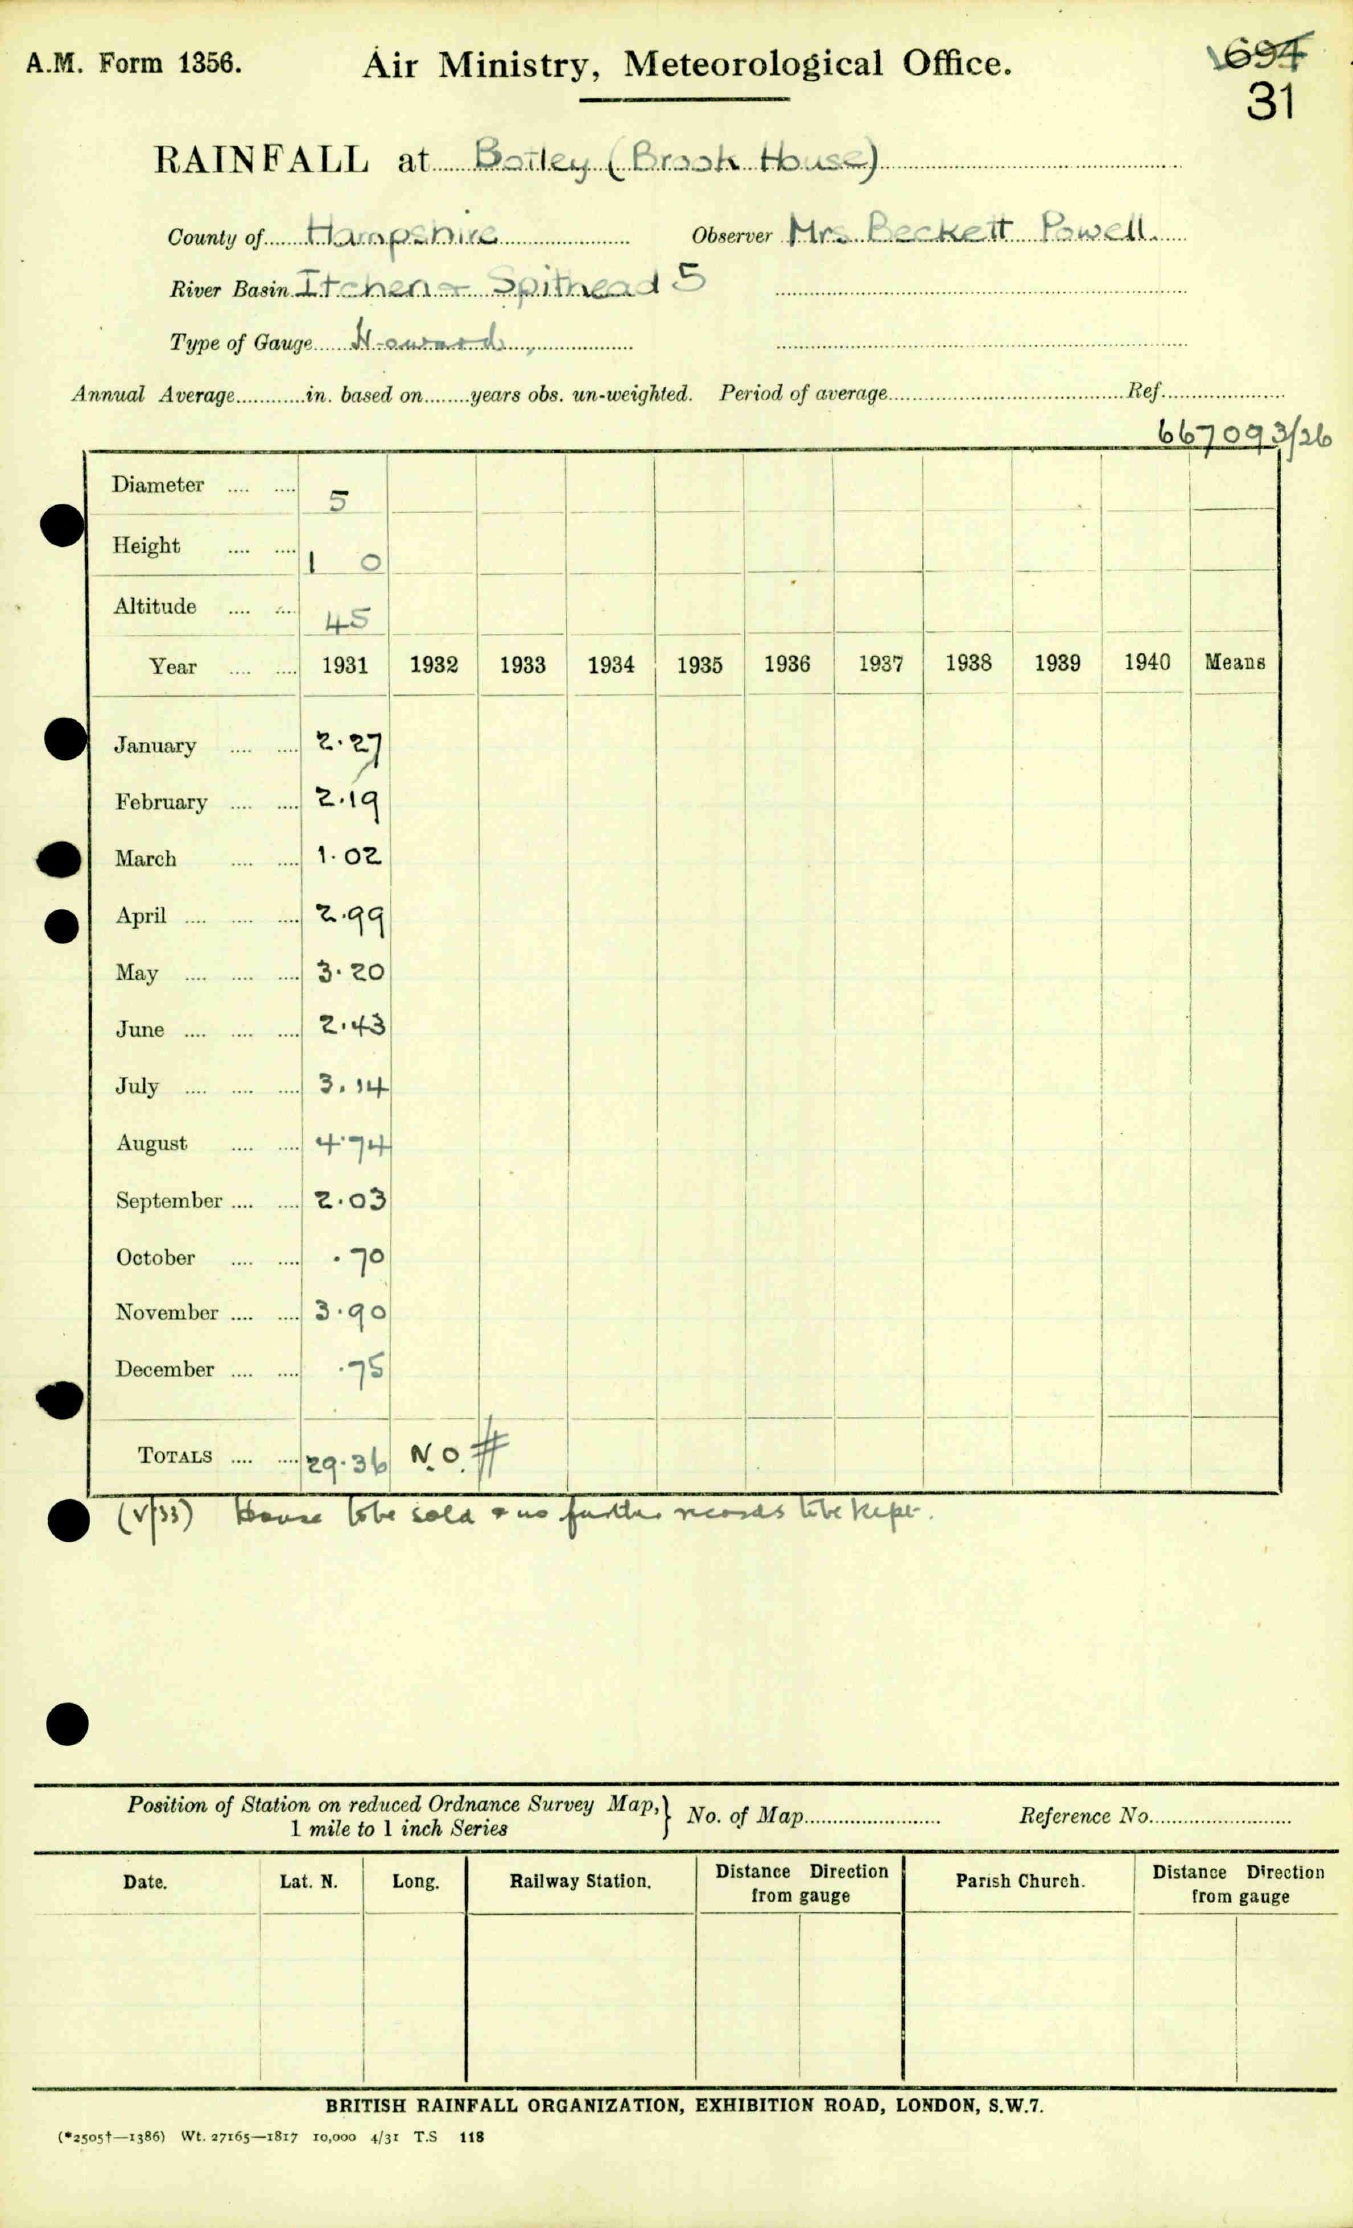 A.M. Form 1356.
Air Ministry, Meteorological Office.
1694
31
RAINFALL at Botley (Brook House)
County of Hampshire Observer Mrs Beckett Powell.
River Basin Itchen & Spithead 5
Type of Gauge Howard,
Annual Average............in. based on........years obs. un-weighted. Period of average.......................................Ref.....................
667093/26
Diameter .... .... 5
Height .... .... 1 0
Altitude .... .... 45
Year .... .... 1931 1932 1933 1934 1935 1936 1937 1938 1939 1940 Means
January .... .... 2.27
February .... .... 2.19
March .... .... 1.02
April .... .... .... 2.99
May .... .... .... 3.20
June .... .... .... 2.43
July .... .... .... 3.14
August .... .... 4.74
September .... .... 2.03
October .... .... .70
November .... .... 3.90
December .... .... .75
TOTALS .... .... 29.36 N.O. #
(V/33) House to be sold & no further records to be kept.
Position of Station on reduced Ordnance Survey Map,} No. of Map........................ Reference No.........................
1 mile to 1 inch Series
Date. Lat. N. Long. Railway Station. Distance Direction from gauge Parish Church. Distance Direction from gauge
BRITISH RAINFALL ORGANIZATION, EXHIBITION ROAD, LONDON, S.W.7.
(*2505†—1386) Wt. 27165—1817 10,000 4/31 T.S 118